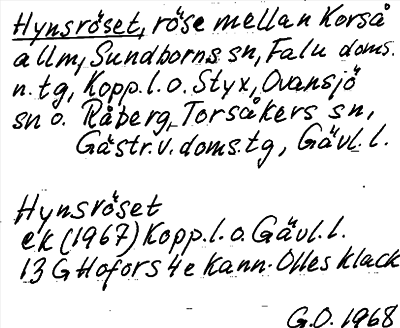 Hynsröset, röse mellan Korså
allm, Sundborns sn, Falu doms.
n. tg, Kopp. l. o. Styx, Ovansjö
sn o. Råberg, Torsåkers sn,
Gästr. v. doms. tg, Gävl. l.
Hynsröset
ek (1967) Kopp. l. o. Gävl. l.
13 G Hofors 4e Kann-Olles klack
G.O. 1968